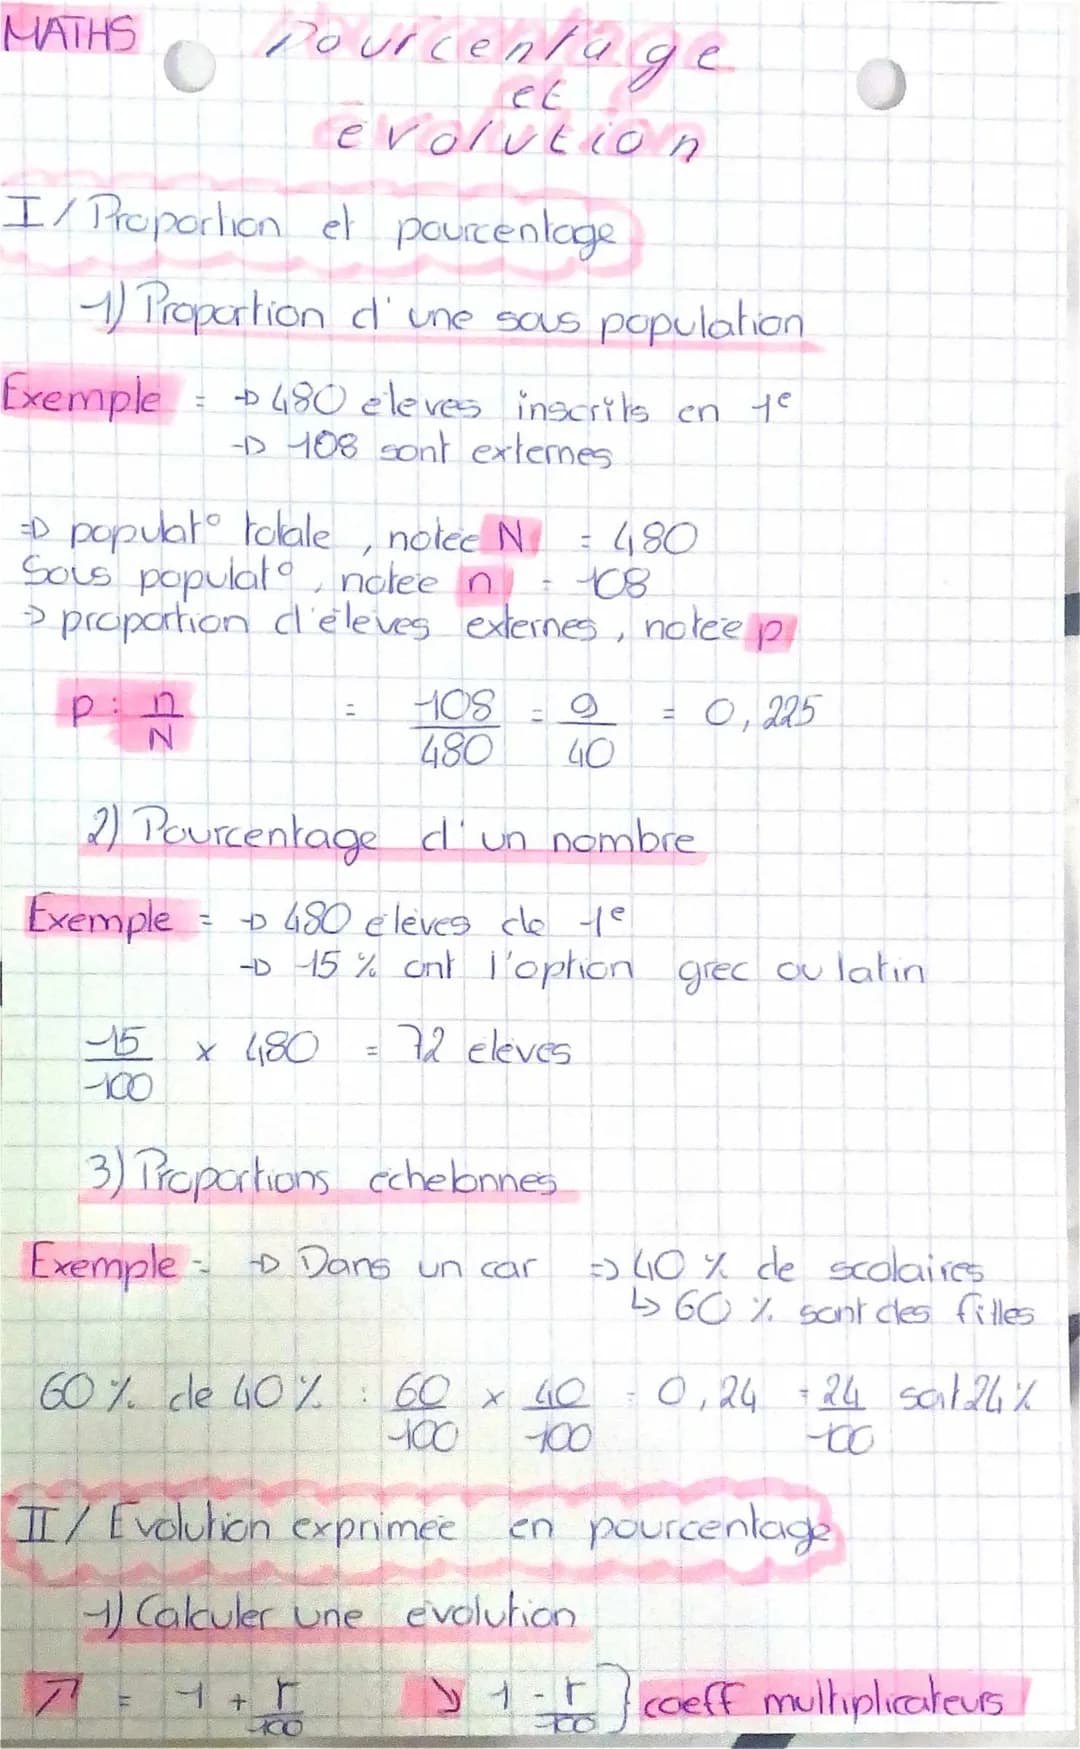 MATHS
Pourcentage
et
évolution
I/ Proportion et pourcentage
1) Proportion d'une sous population
Exemple = → 480 élèves inscrits en 1e
→ 108 sont externes
⇒ populat° totale, notée N = 480
Sous populat°, notée n = 108
→ proportion d'élèves externes, notée p
p = n/N = 108/480 = 9/40 = 0,225
2) Pourcentage d'un nombre
Exemple = → 480 élèves de 1e
→ 15 % ont l'option grec ou latin
15/100 x 480 = 72 élèves
3) Proportions échelonnés
Exemple = → Dans un car ⇒ 40 % de scolaires
↳ 60 % sont des filles
60 % de 40 % : 60/100 x 40/100 = 0,24 = 24/100 soit 24 %
II/ Evolution exprimée en pourcentage
1) Calculer une évolution
↗ = 1 + r/100 ↘ 1 - r/100 } coeff multiplicateurs